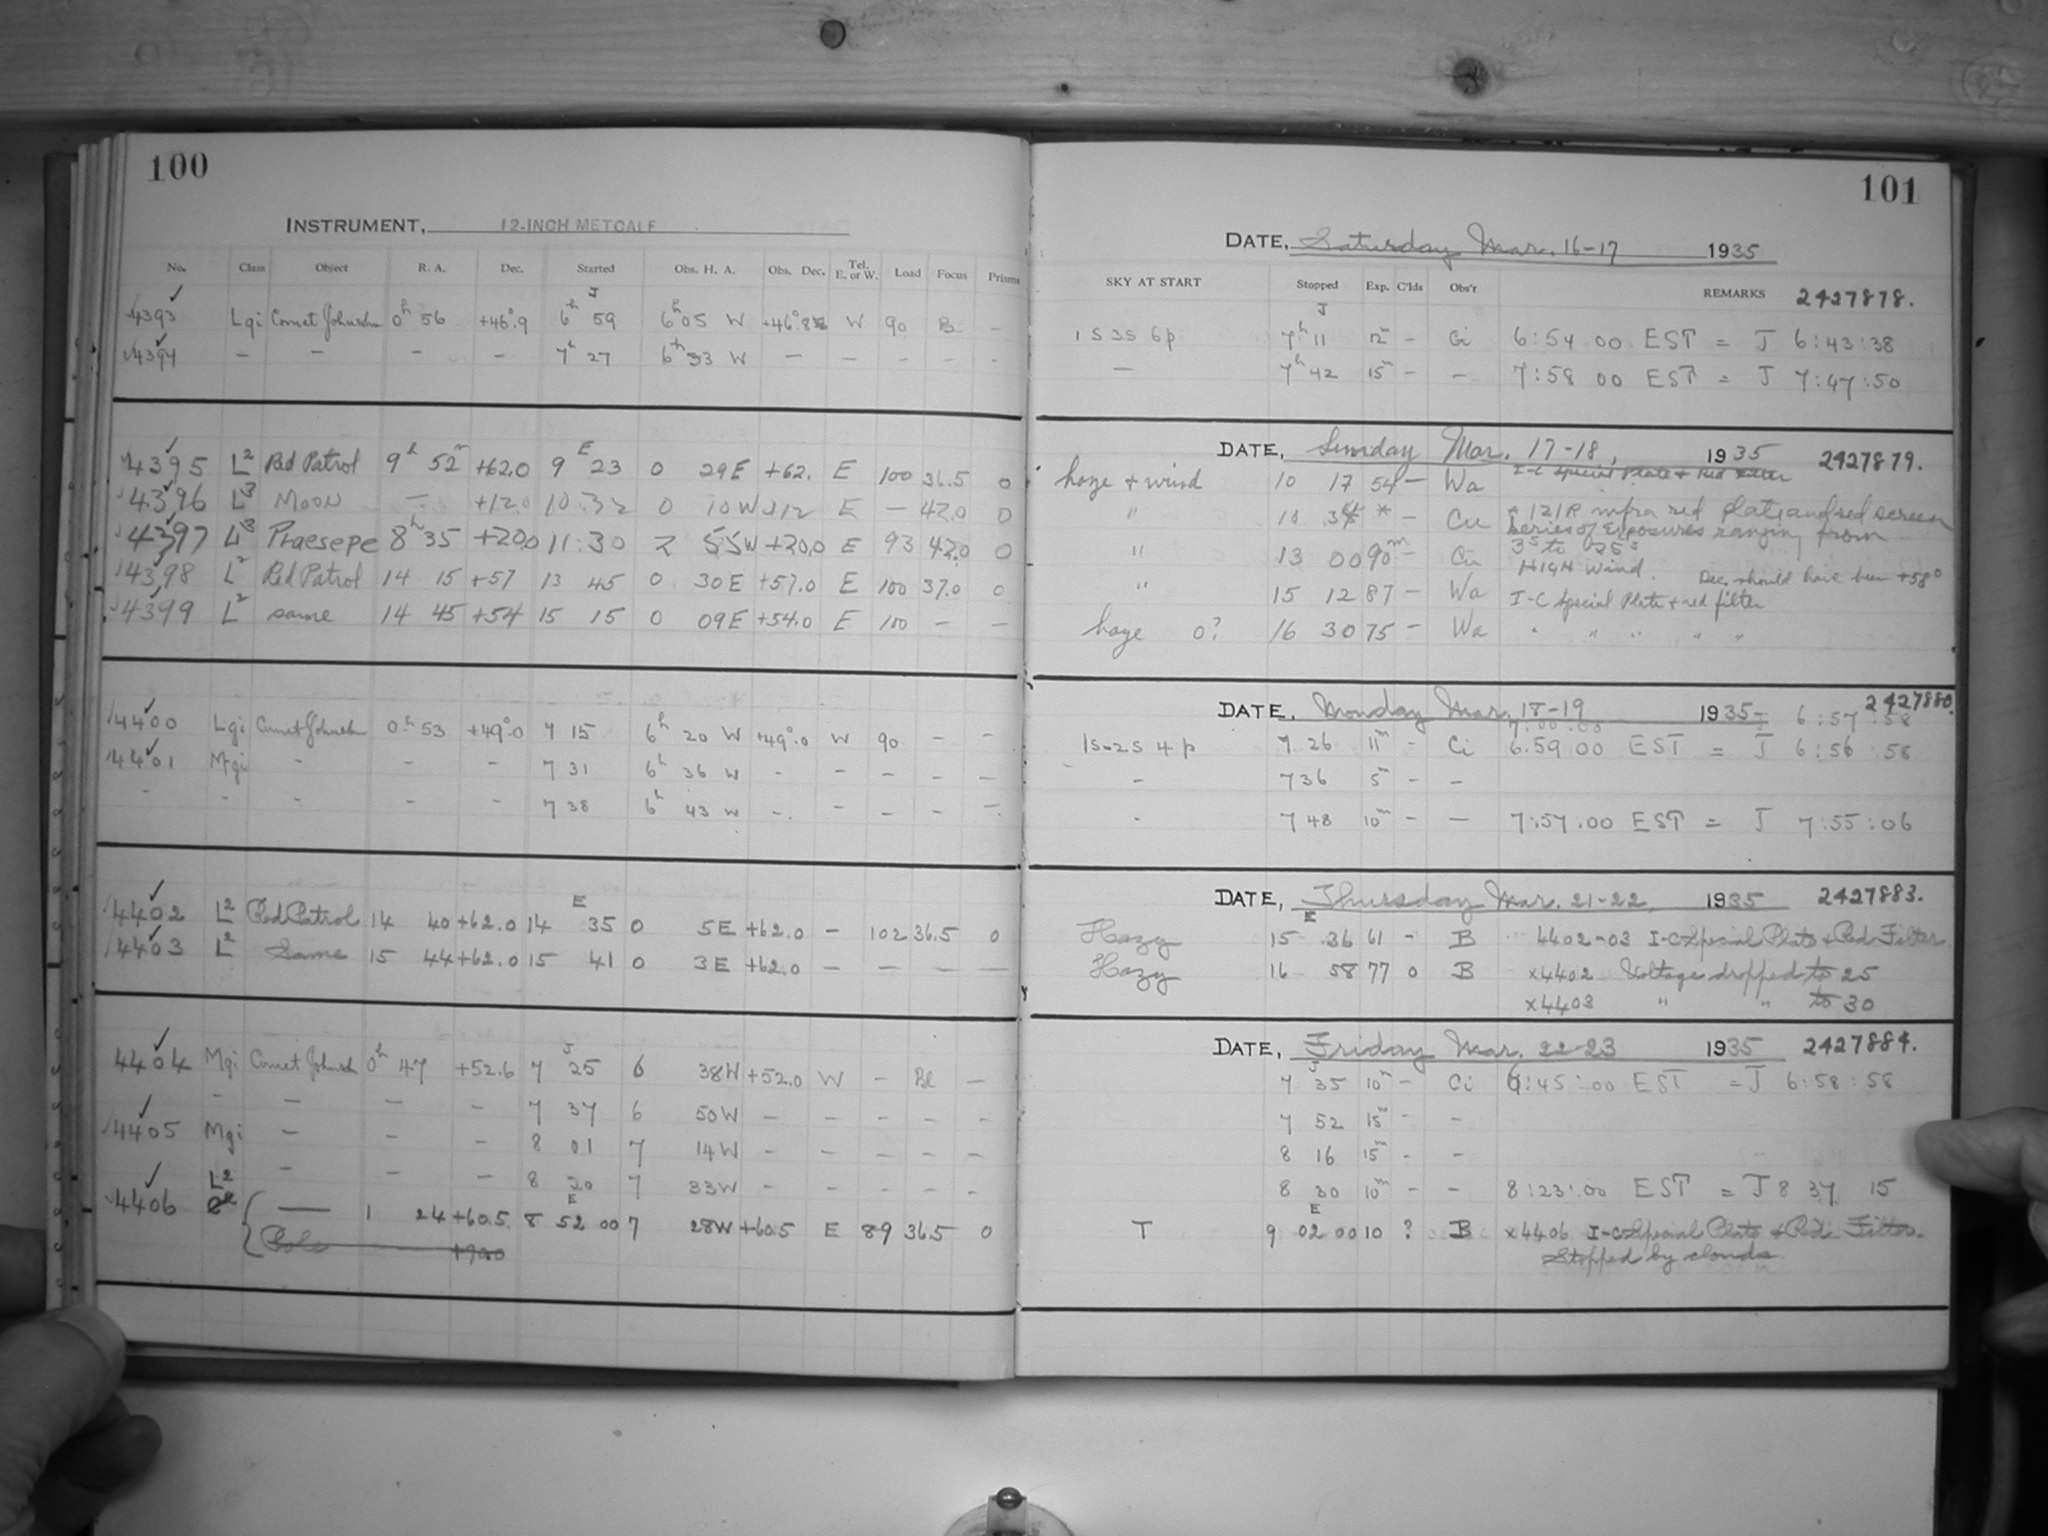 100
INSTRUMENT, 12-INCH METCALF
No. Class Object R. A. Dec. Started Obs. H. A. Obs. Dec. Tel. E. or W. Load Focus Prisms
4393 Lgi Comet Johnson 0h 56 +46°.9 6h J 59 6h 05 W W 90 –
4394 – – – – 7h 27 6h 33 W – – – – –
4395 L2 Red Patrol 9h 52m +62.0 9 E 23 0 29E +62. E 100 36.5 0
4396 L3 Moon – +12.0 10:32 0 10W +12 E – 42.0 0
4397 L3 Praesepe 8h 35 +20.0 11:30 2 55W +20.0 E 93 42.0 0
4398 L2 Red Patrol 14 15 +57 13 45 0 30E +57.0 E 100 37.0 0
4399 L2 same 14 45 +54 15 15 0 09E +54.0 E 100 – –
4400 Lgi Comet Johnson 0h 53 +49°.0 7 15 6h 20 W +49°.0 W 90 – –
4401 Mgi – – – 7 31 6h 36 W – – – – –
– – – – – 7 38 6h 43 W – – – – –
4402 L2 Red Patrol 14 40 +62.0 14 E 35 0 5E +62.0 – 102 36.5 0
4403 L2 Same 15 44 +62.0 15 41 0 3E +62.0 – – – –
4404 Mgi Comet Johnson 0h 47 +52.6 7 J 25 6 38W +52.0 W – Bl –
– – – – 7 37 6 50W – – – – –
4405 Mgi – – – 8 01 7 14W – – – – –
– – – 8 20 7 33W – – – – –
4406 L2 — 1 24 +60.5 8 E 52 00 7 28W +60.5 E 89 36.5 0
Pole +90.0
101
DATE, Saturday Mar. 16-17 1935
SKY AT START Stopped Exp. C'lds Obs'r REMARKS 2427878.
1 S 3S 6p 7h J 11 – Gi 6:54 00 EST = J 6:43:38
– 7h 42 15m – – 7:58 00 EST = J 7:47:50
DATE, Sunday Mar. 17-18, 1935 2427879.
haze + wind 10 17 54 – Wa I-C Special Plate + Red Filter
" * – Cu * 121R infra red plate and red screen
series of exposures ranging from
" 13 00 90m – Cu 3s to 25s
HIGH wind. Dec. should have been +58°
" 15 12 87 – Wa I-C Special Plate + red filter
haze 0? 16 30 75 – Wa " " " " "
DATE, Monday Mar. 18-19 1935 2427880.
7:00:00 J 6:57:58
1S-2S 4p 7 26 11m – Ci 6.59 00 EST = J 6:56:58
– 7 36 5m – –
– 7 48 10m – – 7:57:00 EST = J 7:55:06
DATE, Thursday Mar. 21-22, 1935 2427883.
Hazy 15 E 36 61 – B 4402-03 I-C Special Plate + Red Filter
Hazy 16 58 77 0 B x4402 Voltage dropped to 25
x4403 " " to 30
DATE, Friday Mar. 22-23 1935 2427884.
7 J 35 10m – Ci :45:00 EST = J 6:58:58
7 52 15m – –
8 16 15m – –
8 30 10m – – 8:23:00 EST = J 8 37 15
T 9 E 02 00 10 ? B x4406 I-C Special Plate + Red Filter.
Stopped by clouds